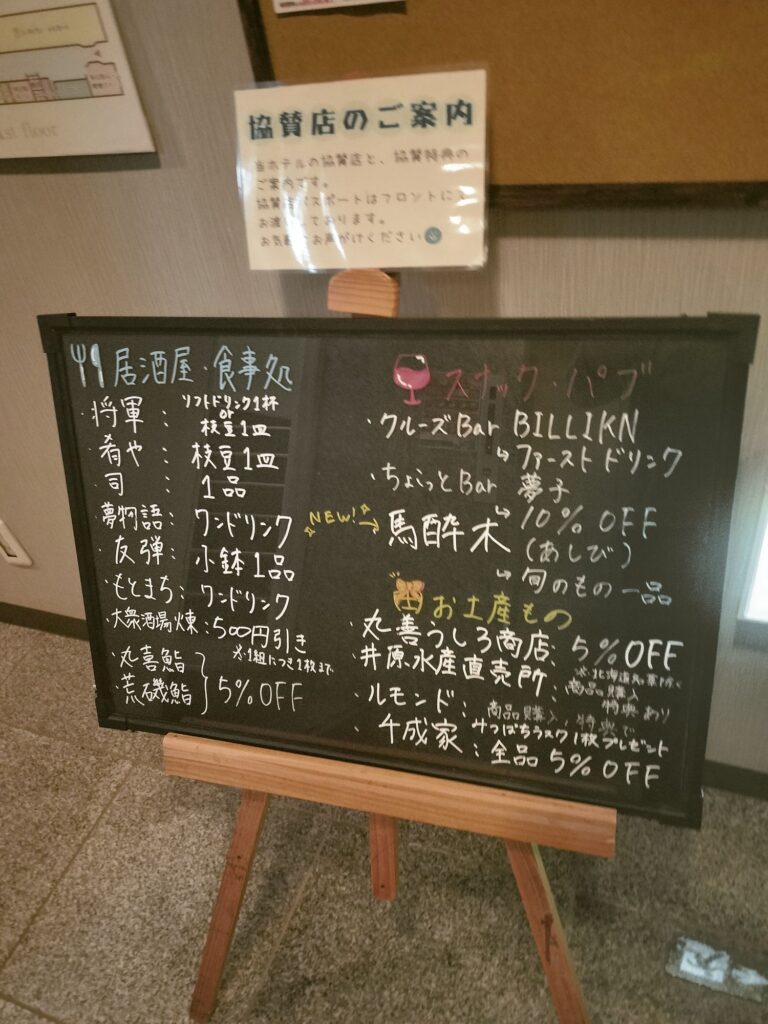 1st floor
協賛店のご案内
当ホテルの協賛店と、協賛特典の
ご案内です。
協賛店パスポートはフロントにて
お渡しております。
お気軽にお声がけください
居酒屋・食事処
・将軍 : ソフトドリンク1杯
or
枝豆1皿
・肴や : 枝豆1皿
・司 : 1品
・夢物語 : ワンドリンク
・友弾 : 小鉢1品
・もとまち : ワンドリンク
・大衆酒場 煉 : 500円引き
※1組につき1枚まで
・丸喜鮨
・荒磯鮨
5%OFF
スナック・パブ
・クルーズBar BILLIKN
↳ファーストドリンク
・ちょこっとBar 夢子
↳10%OFF
NEW! → 馬酔木(あしび)
↳旬のもの一品
お土産もの
・丸善うしろ商店: 5%OFF
※北海道
・井原水産直売所: 商品購入
特典あり
・ルモンド: 商品購入、特典で
みつばちラスク1枚プレゼント
・千成家: 全品5%OFF